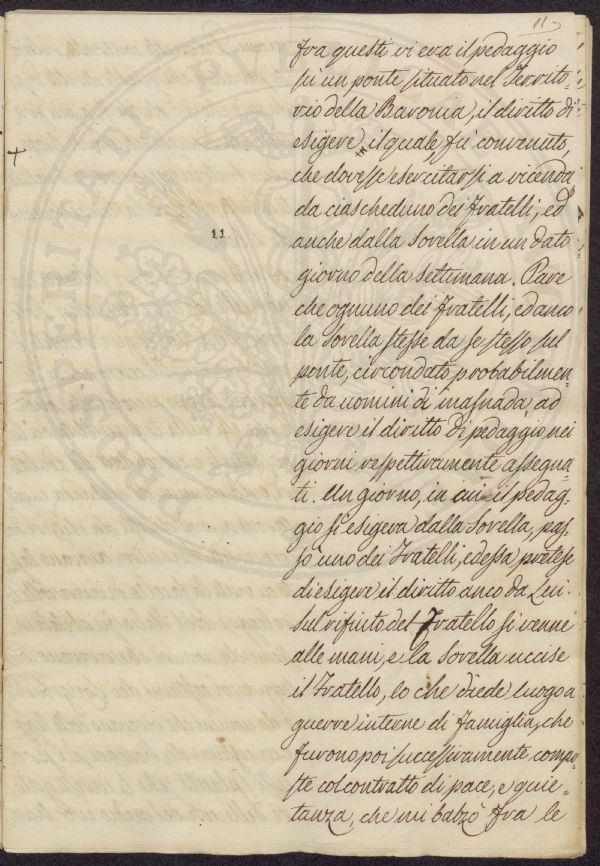 11
fra questi vi era il pedaggio
sù un ponte situato nel Territo=
rio della Baronia, il diritto di
esigere, il quale, fù convenuto,
che dovesse esercitarsi a vicenda
da ciascheduno dei Fratelli, ed
anche dalla Sorella in un dato
11
giorno della settimana. Pare
che ognuno dei Fratelli, ed anco
la Sorella stesse da se stesso sul
ponte, circondato probabilmen=
te da uomini di masnada, ad
esigere il diritto di pedaggio nei
giorni respettivamente assegna=
ti. Un giorno, in cui il pedag=
gio si esigeva dalla Sorella, pas=
sò uno dei Fratelli, ed essa pretese
di esigere il diritto anco da Lui.
Sul rifiuto del Fratello si venne
alle mani, e la Sorella uccise
il Fratello, lo che diede luogo a
guerre interne di famiglia, che
furono poi successivamente compo=
ste col contratto di pace, e quie=
tanza, che mi balzò fra le
POSTERITATI